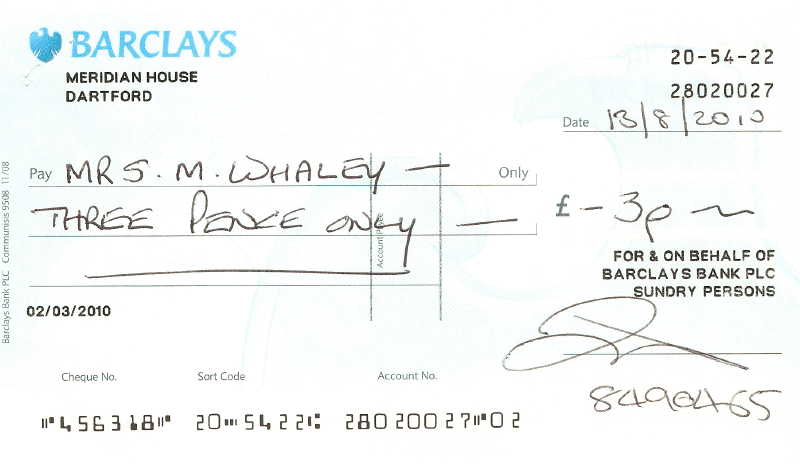 BARCLAYS
MERIDIAN HOUSE
DARTFORD
20-54-22
28020027
Date 13/8/2010
Pay MRS. M. WHALEY — Only
THREE PENCE ONLY — £ - 3p ~
Account Payee
FOR & ON BEHALF OF
BARCLAYS BANK PLC
SUNDRY PERSONS
02/03/2010
Barclays Bank PLC Communisis 9508 11/08
Cheque No. Sort Code Account No.
8490465
⑈456318⑈ 20⑉5422⑆ 28020027⑈02